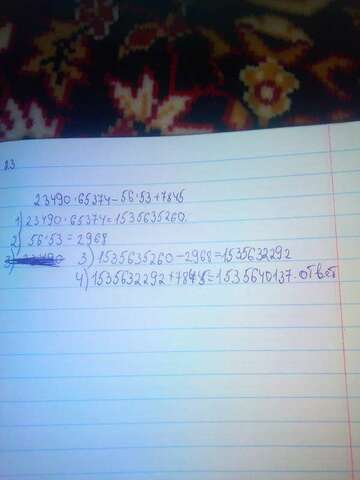 23
23490·65374-56·53+7845
1) 23490·65374=1535635260
2) 56·53=2968
3) 1535635260-2968=1535632292
4) 1535632292+7845=1535640137. ответ